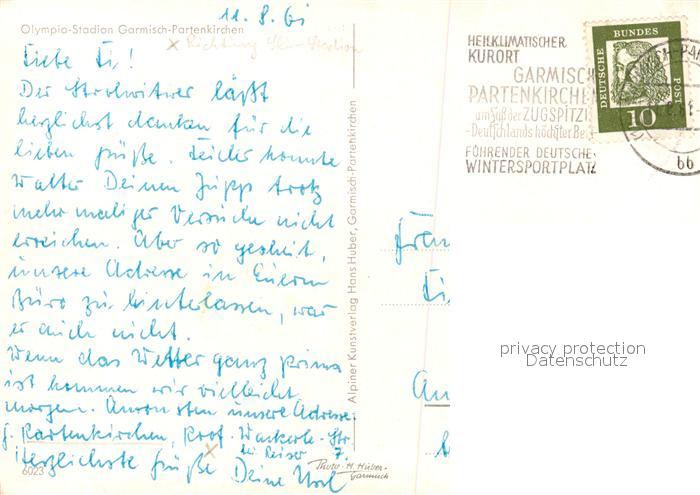 11.8.61
Olympia-Stadion Garmisch-Partenkirchen
x Richtung Ski-Stadion
Liebe Li!
Der Strohwitwer läßt
herzlichst danken für die
lieben Grüße. Leider konnte
Walter Deinen Jupp trotz
mehrmaliger Versuche nicht
erreichen. Aber so gescheit,
unsere Adresse in Eurem
Büro zu hinterlassen, war
er auch nicht.
Wenn das Wetter ganz prima
ist kommen wir vielleicht
morgen. Ansonsten unsere Adresse:
Partenkirchen, Prof. Wackerle-Str
bei Reiser 7.
Herzlichste Grüße Deine
6023
Photo-H. Huber-
Garmisch
Alpiner Kunstverlag Hans Huber, Garmisch-Partenkirchen
HEILKLIMATISCHER
KURORT
GARMISCH
PARTENKIRCHE
am Fuß der ZUGSPITZ
-Deutschlands höchster Be
FÜHRENDER DEUTSCHE
WINTERSPORTPLATZ
DEUTSCHE BUNDES POST
10
bb
An
privacy protection
Datenschutz